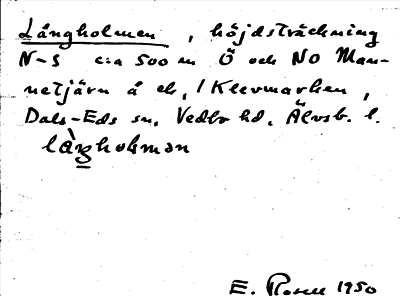 Långholmen, höjdsträckning
N-S c:a 500 m Ö och NO Man-
netjärn å ek, / Klevmarken,
Dals-Eds sn, Vedbo hd, Älvsb. l.
làŋholmən
E. Rosell 1950